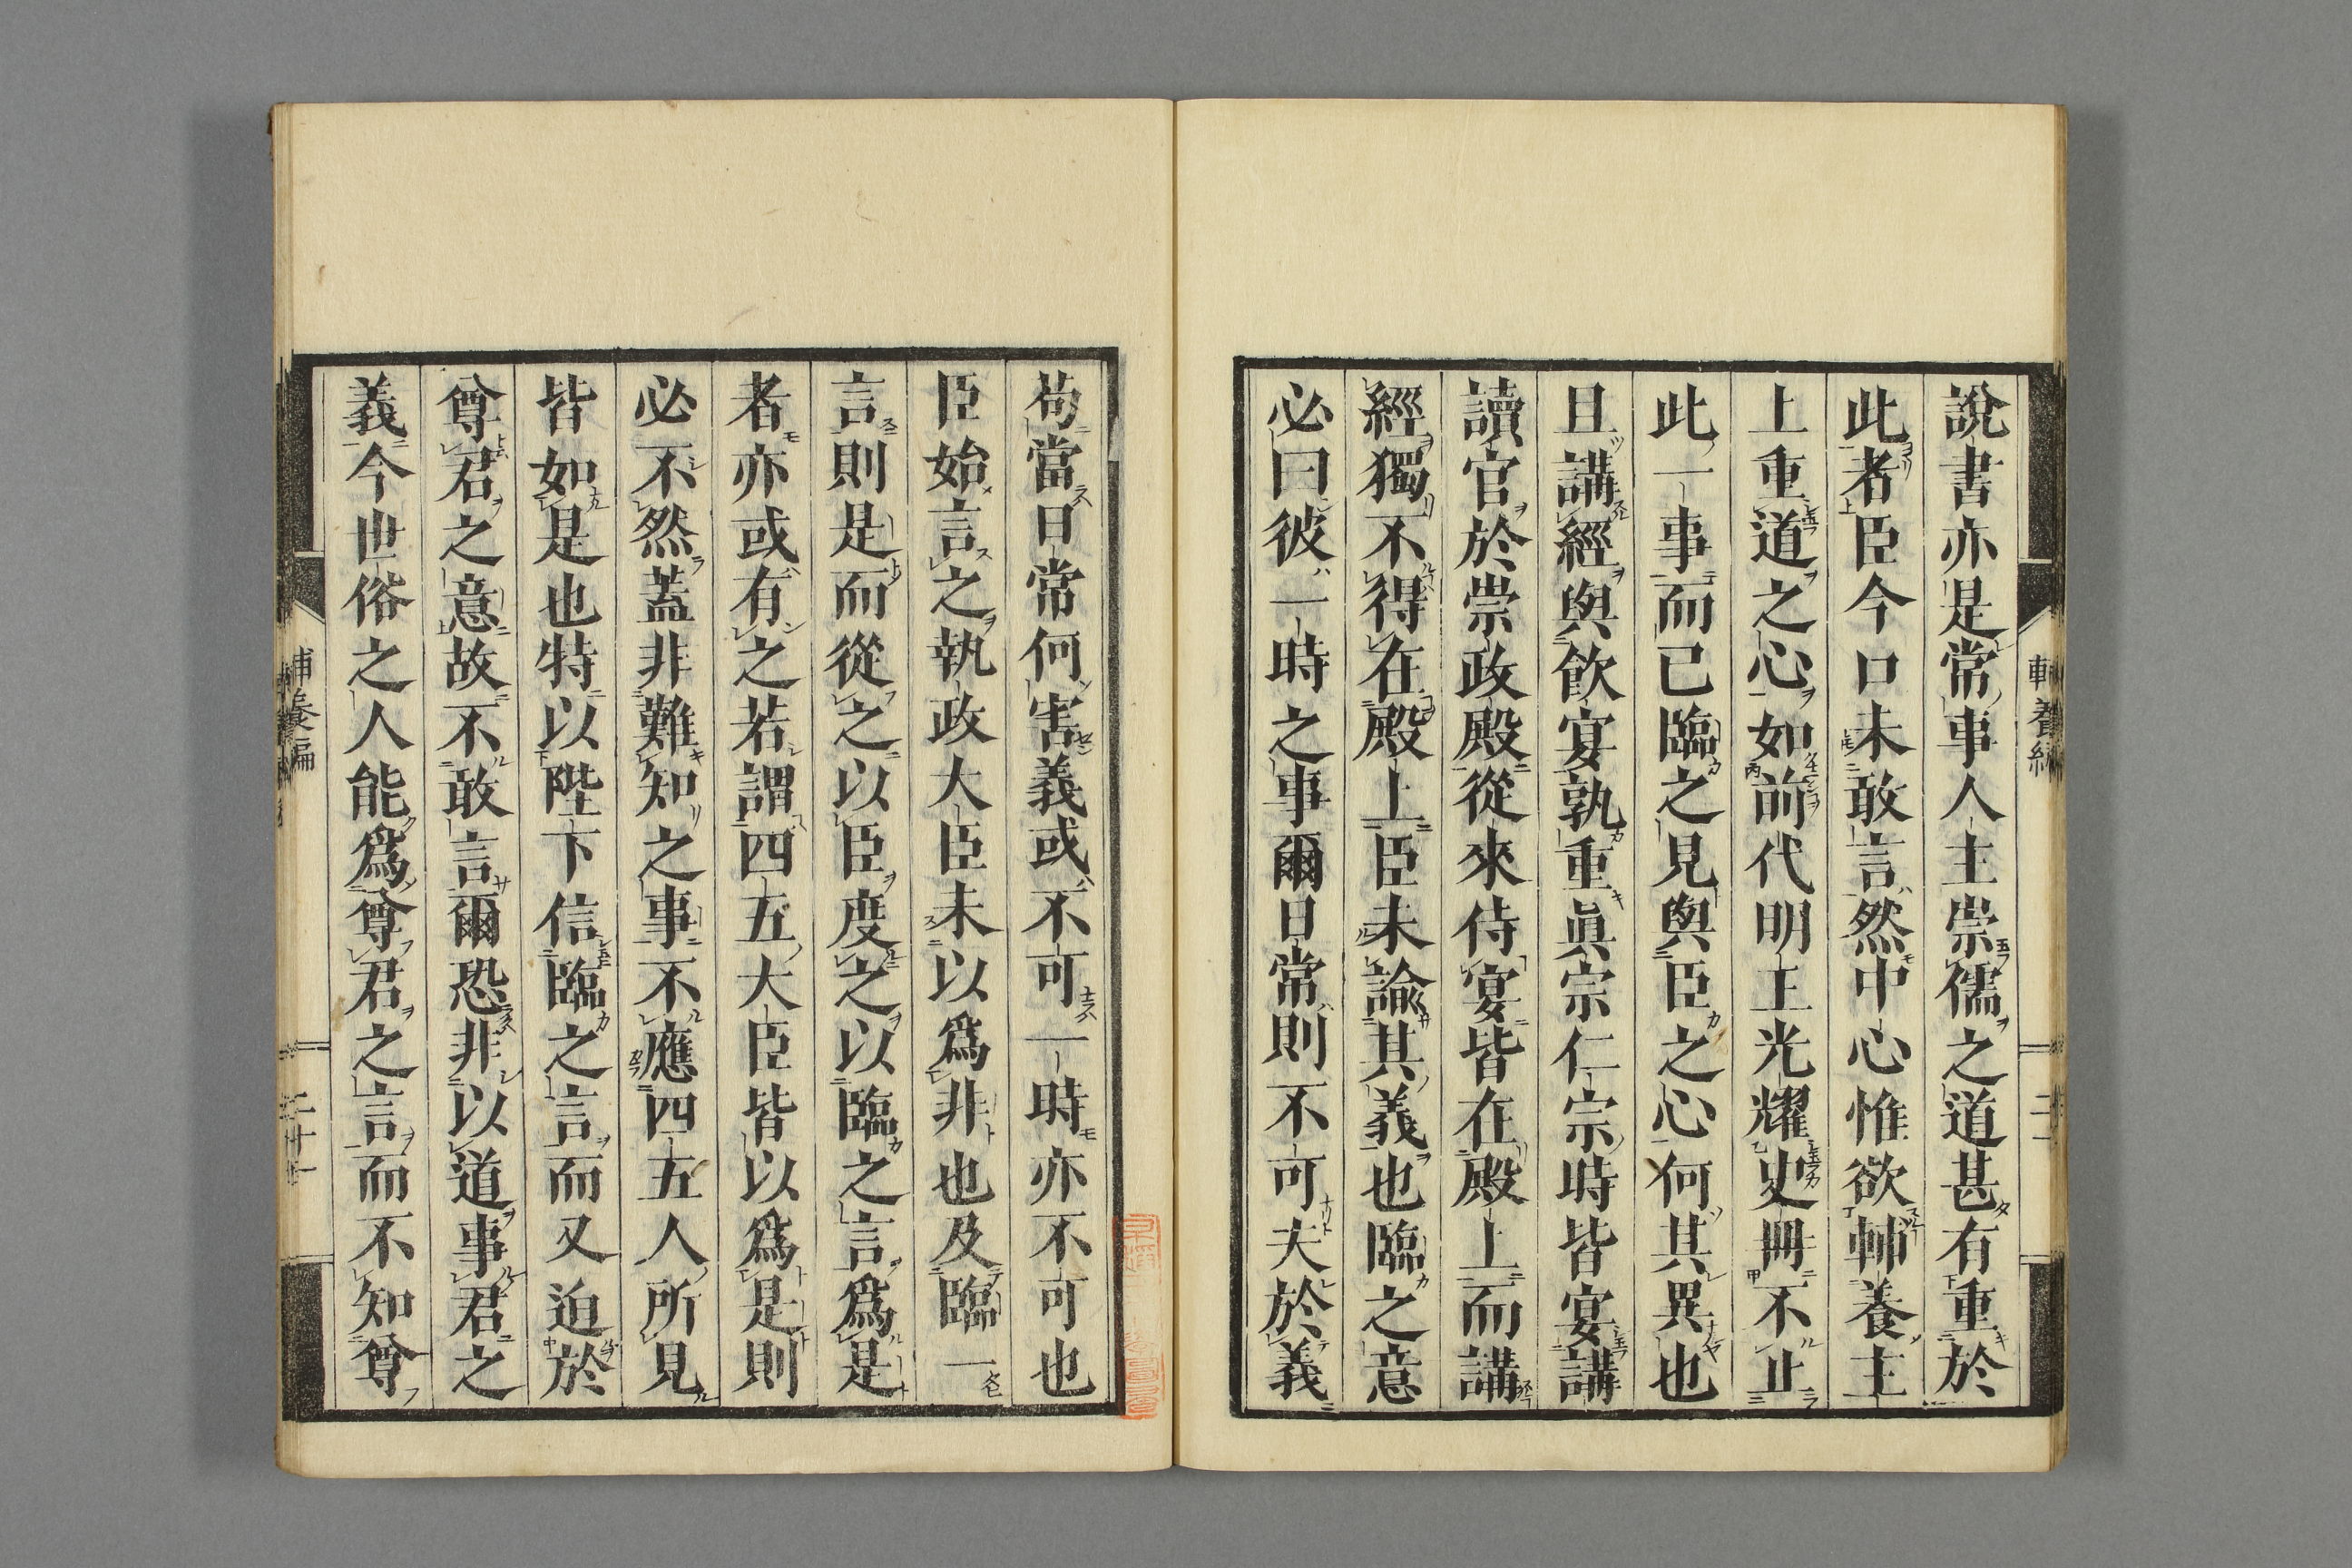 說書亦是常事人主崇儒之道甚有重於
此者臣今口未敢言然中心惟欲輔養主
上重道之心如前代明王光耀史冊不止
此一事而已臨之見與臣之心何其異也
且講經與飮宴孰重眞宗仁宗時皆宴講
讀官於崇政殿從來侍宴皆在殿上而講
經獨不得在殿上臣未諭其義也臨之意
必曰彼一時之事爾日常則不可夫於義
苟當日常何害義或不可一時亦不可也
臣始言之執政大臣未以爲非也及臨一
言則是而從之以臣度之以臨之言爲是
者亦或有之若謂四五大臣皆以爲是則
必不然蓋非難知之事不應四五人所見
皆如是也特以陛下信臨之言而又迫於
尊君之意故不敢言爾恐非以道事君之
義今世俗之人能爲尊君之言而不知尊